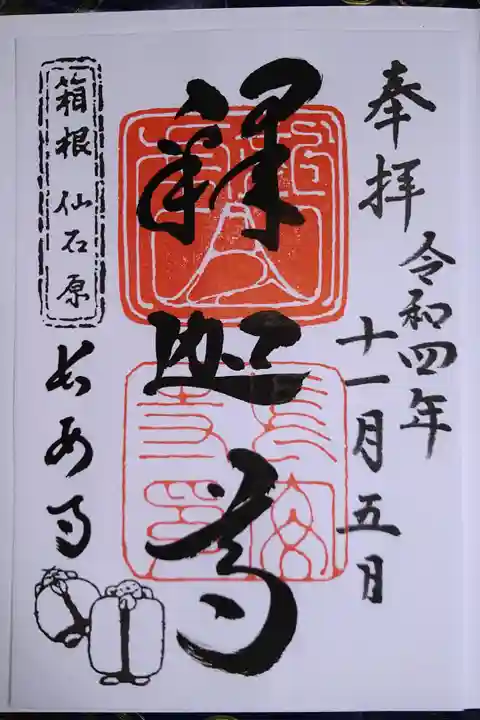 奉拝
令和四年
十一月五日
釋迦尊
長安寺印
箱根 仙石原
長安寺